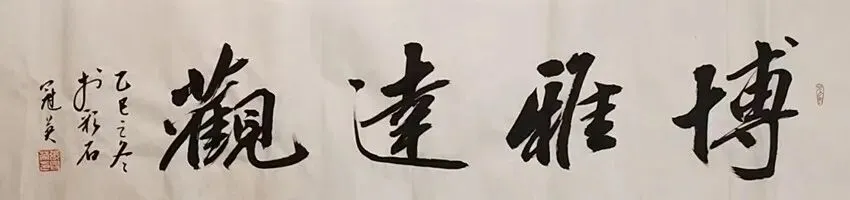 博雅達觀
乙巳之冬
於彩石
冠英